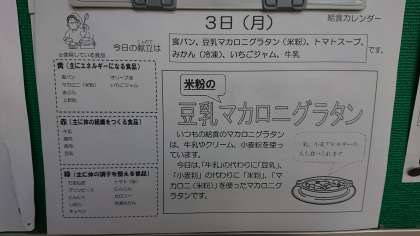 3日（月）
給食カレンダー
今日の献立は
食パン、豆乳マカロニグラタン（米粉）、トマトスープ、
みかん（冷凍）、いちごジャム、牛乳
です。
☆使用している食品
黄（主にエネルギーになる食品）
食パン
オリーブ油
マカロニ（米粉）
いちごジャム
米粉の
豆乳マカロニグラタン
いつもの給食のマカロニグラタン
は、牛乳やクリーム、小麦粉を使っ
ています。
今日は、「牛乳」の代わりに「豆乳」、
「小麦粉」の代わりに「米粉」、「マ
カロニ（米粉）」を使ったマカロニグ
ラタンです。
乳、小麦アレルギーの
人も食べられます。
赤（主に体の組織をつくる食品）
牛乳
豚肉
豆乳
緑（主に体の調子を整える食品）
たまねぎ
トマト（缶）
にんじん
キャベツ